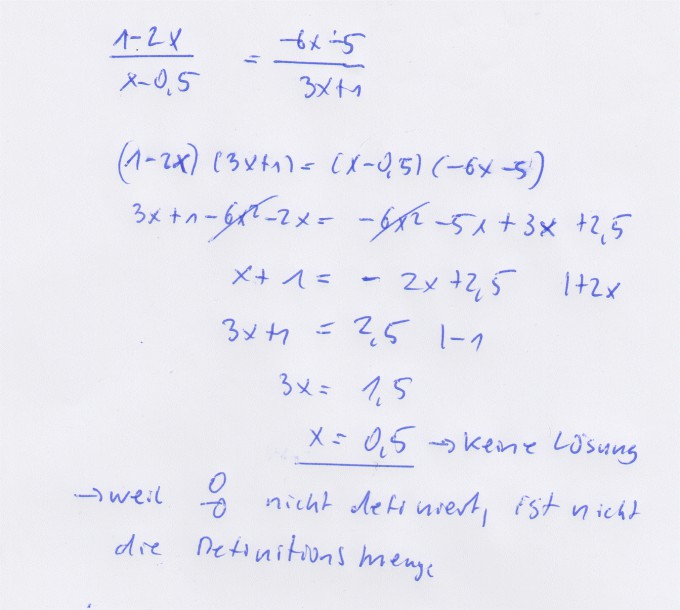 1-2x / x-0,5 = -6x-5 / 3x+1
(1-2x) (3x+1) = (x-0,5) (-6x-5)
3x+1-6x²-2x = -6x²-5x+3x+2,5
x+1 = -2x+2,5 |+2x
3x+1 = 2,5 |-1
3x = 1,5
x = 0,5 → keine Lösung
→ weil 0/0 nicht definiert, ist nicht
die Definitionsmenge